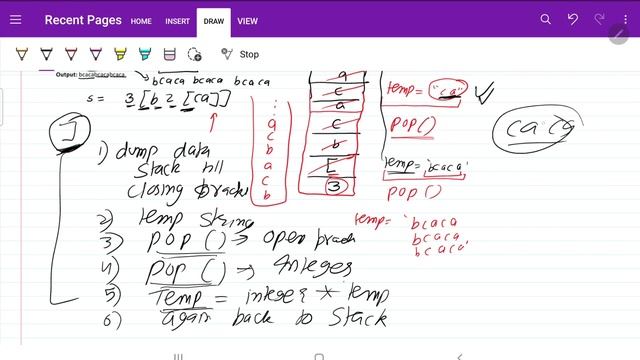 Recent Pages HOME INSERT DRAW VIEW
Stop
Output: bcacabcacabcaca.
bcaca bcaca bcaca
s = 3[b2[ca]]
]
1) dump data
stack till
closing bracket
2) temp string
3) POP() → open brack
4) POP() → Integer
5) Temp = integer * temp
6) again back to stack
:
a
c
b
a
c
b
a
c
a
c
b
[
3
temp = "ca"
POP()
temp = 'bcaca'
POP()
temp = 'bcaca
bcaca
bcaca'
ca ca